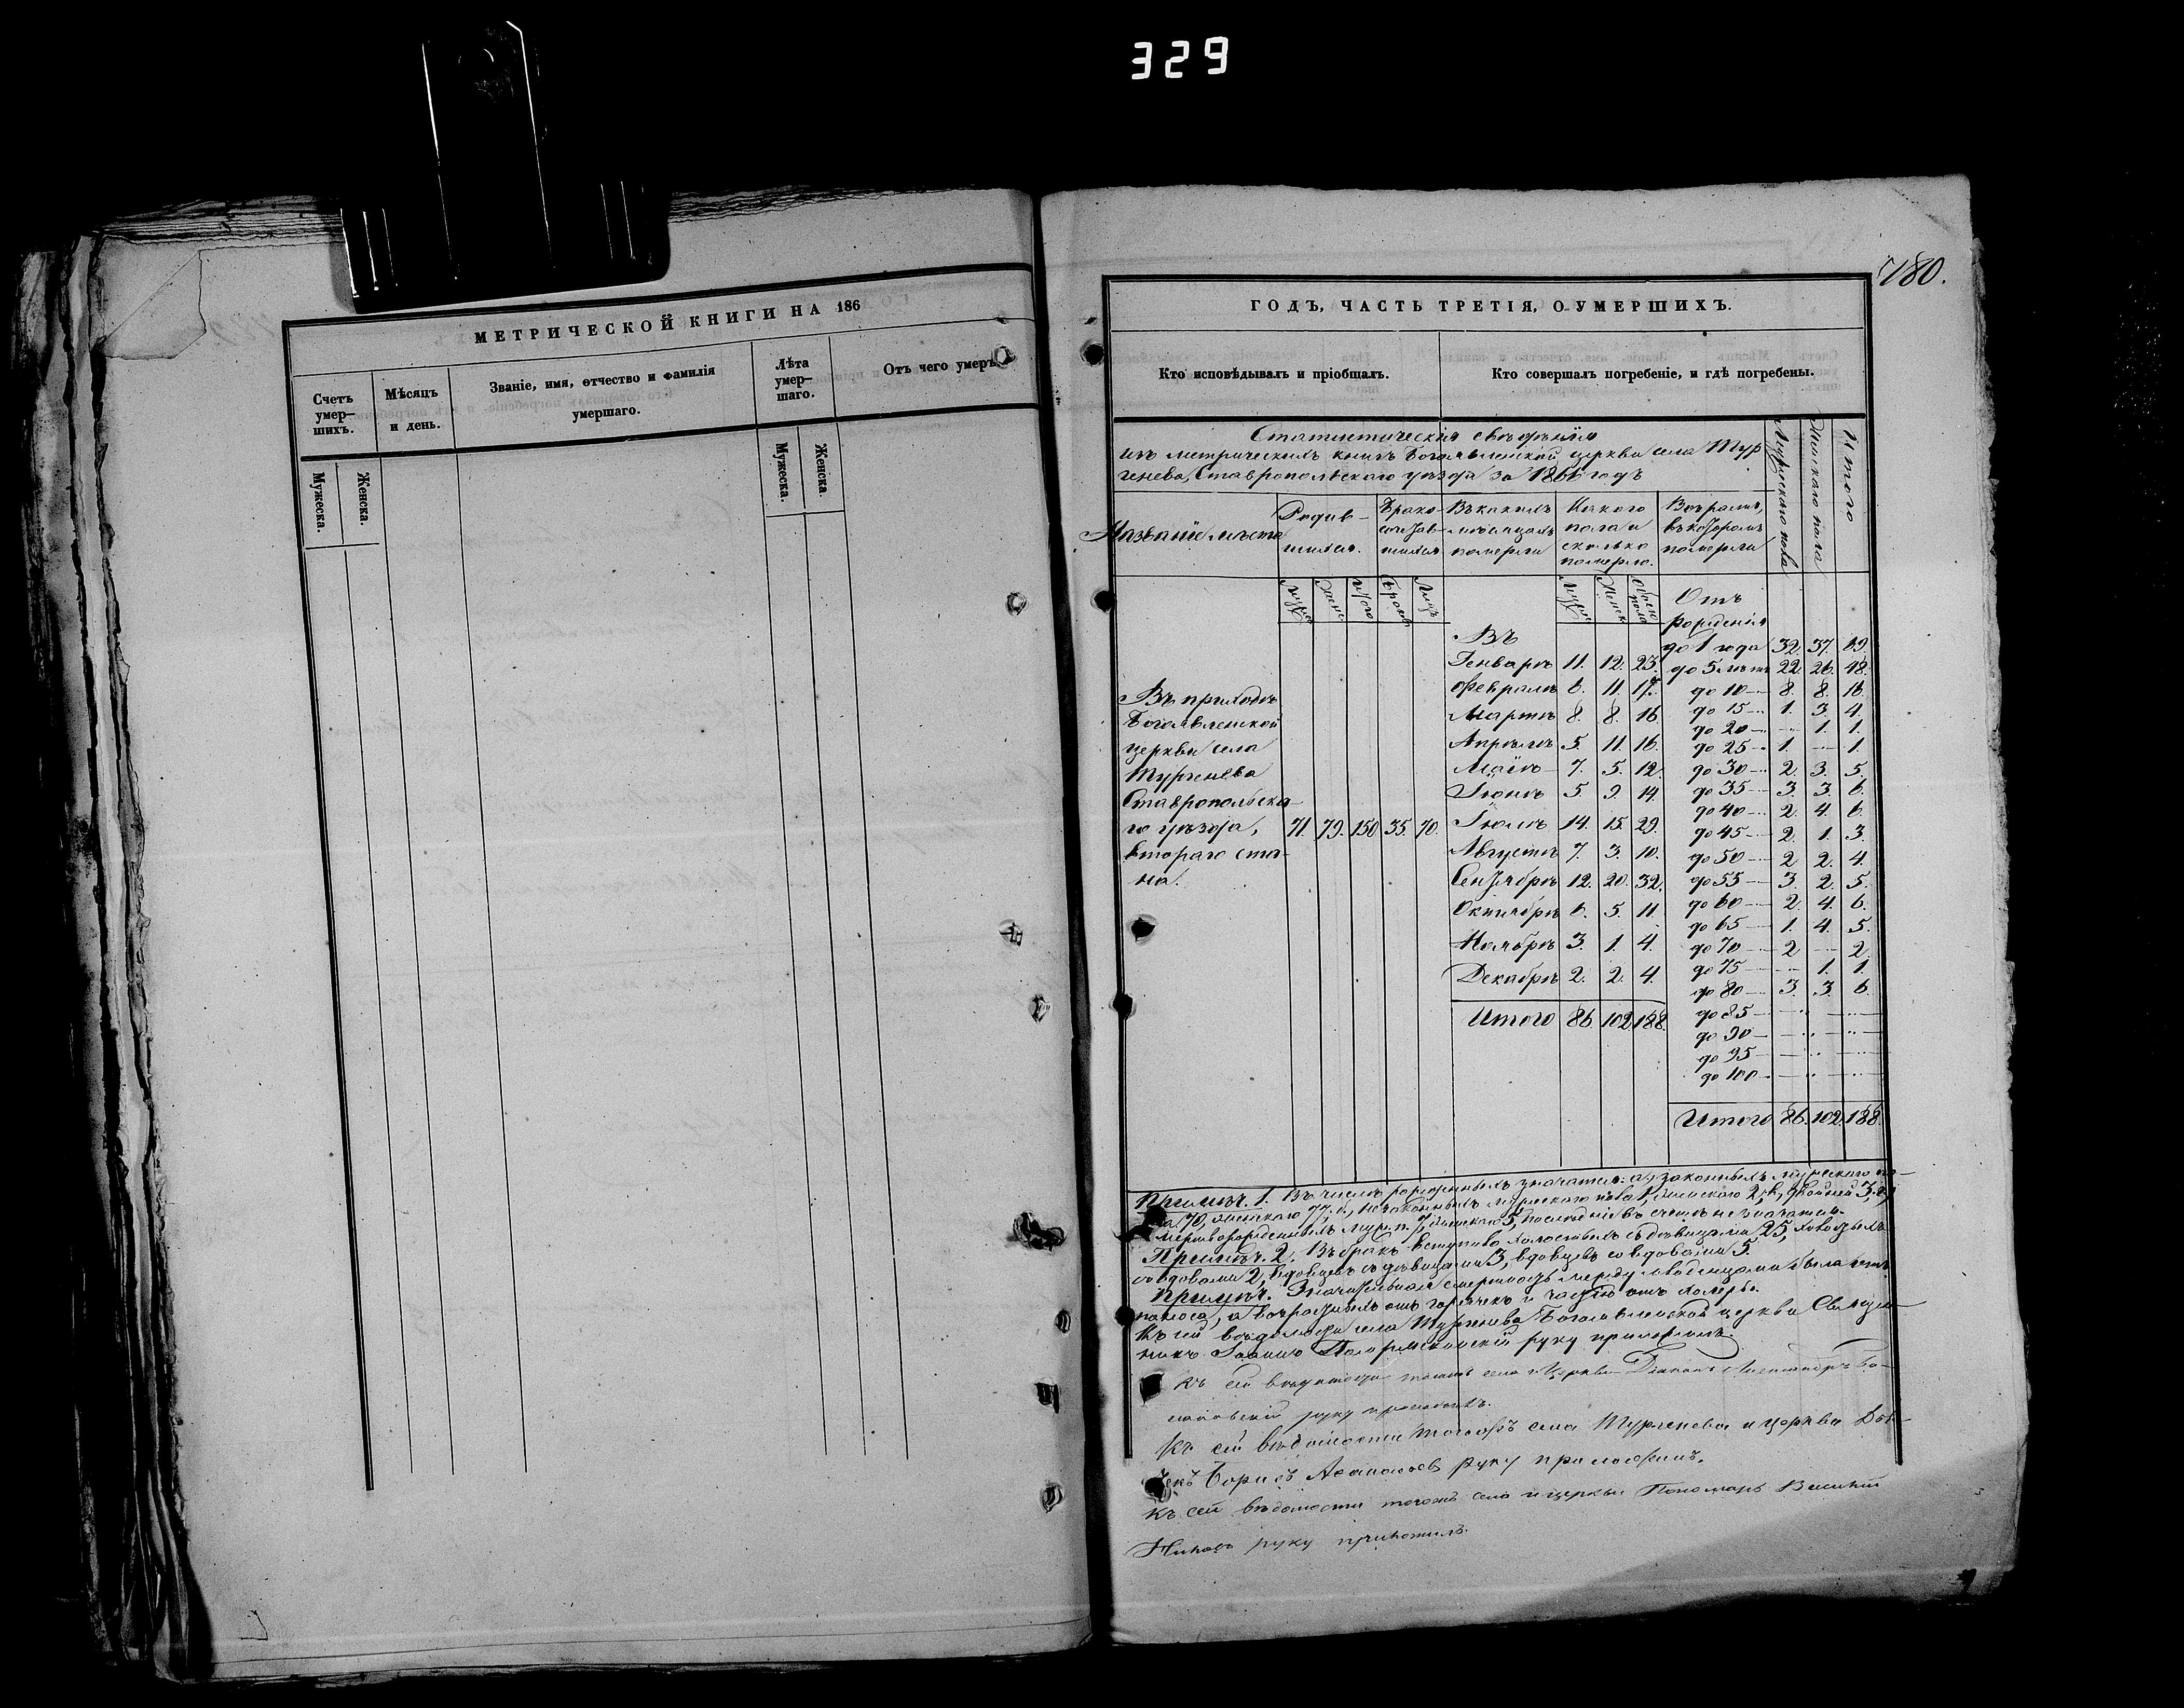 329
МЕТРИЧЕСКОЙ КНИГИ НА 186
Счетъ умер-шихъ.
Мѣсяцъ и день.
Званіе, имя, отчество и фамилія умершаго.
Лѣта умер-шаго.
Отъ чего умеръ.
Мужеска.
Женска.
Мужеска.
Женска.
180.
ГОДЪ, ЧАСТЬ ТРЕТІЯ, О УМЕРШИХЪ.
Кто исповѣдывалъ и пріобщалъ.
Кто совершалъ погребеніе, и гдѣ погребены.
Статистическія свѣдѣнія
изъ метрическихъ книгъ Богоявленской церкви села Тур
генева, Ставропольскаго уѣзда за 1866 годъ
Мужескаго пола
Женскаго пола
Итого
Названіе мѣста
Родив-
шихся.
Брако-
сочетав-
шихся
Въ какихъ
мѣсяцахъ
померли
Какого
пола и
сколько
померло.
Возрастъ,
въ которомъ
померли
Муж
Женс
Итого
Браковъ
Лицъ
Муж
Женск
Обоего пола
Отъ
рожденія
Въ
до 1 года 32. 37. 69.
Генварѣ 11. 12. 23.
до 5 лѣтъ 22. 26. 48.
Февралѣ 6. 11. 17.
до 10 8. 8. 16.
Мартѣ 8. 8. 16.
до 15 1. 3. 4.
до 20 1. 1.
Апрѣлѣ 5. 11. 16.
до 25 1. 1.
Маѣ 7. 5. 12.
до 30 2. 3. 5.
Іюнѣ 5. 9. 14.
до 35 3. 3. 6.
до 40 2. 4. 6.
Іюлѣ 14. 15. 29.
до 45 2. 1. 3.
Августѣ 7. 3. 10.
до 50 2 2. 4.
Сентябрѣ 12. 20. 32.
до 55 3. 2. 5.
Октябрѣ 6. 5. 11
до 60 2. 4. 6.
до 65 1. 4. 5.
Ноябрѣ 3. 1. 4.
до 70 2 2.
Декабрѣ 2. 2. 4.
до 75 1. 1.
до 80 3. 3. 6.
Итого 86. 102 188.
до 85
до 90
до 95
до 100
Итого 86. 102. 188.
Въ приходѣ
Богоявленской
церкви села
Тургенева
Ставропольска-
го уѣзда,
втораго ста-
на.
71. 79. 150 35. 70.
Примѣч. 1. Въ числѣ рожденныхъ значатся: а) законныхъ мужескаго по-
ла 70, женскаго 77, б, незаконныхъ мужескаго пола 1, женскаго 2, в, двойней 3, г)
мертворожденныхъ муж. п. 7, женскаго 5, послѣдніе въ счетъ не значатся.
Примѣч. 2. Въ бракъ вступило холостыхъ съ дѣвицами 25, холостыхъ
со вдовами 2, вдовцевъ съ дѣвицами 3, вдовцевъ со вдовами 5.
Примѣч. Значительная смертность между младенцами была отъ
поноса, а возрастныхъ отъ горячекъ и частію отъ холеры.
Къ сей вѣдомости села Тургенева Богоявленской церкви Священ-
никъ Іоаннъ руку приложилъ.
Къ сей вѣдомости тогожъ села и Церкви Діаконъ Александръ Бо-
руку приложилъ.
Къ сей вѣдомости тогожъ села Тургенева и церкви Дья-
чекъ Борисъ руку приложилъ.
Къ сей вѣдомости тогожъ села и церкви Пономарь Василій
руку приложилъ.